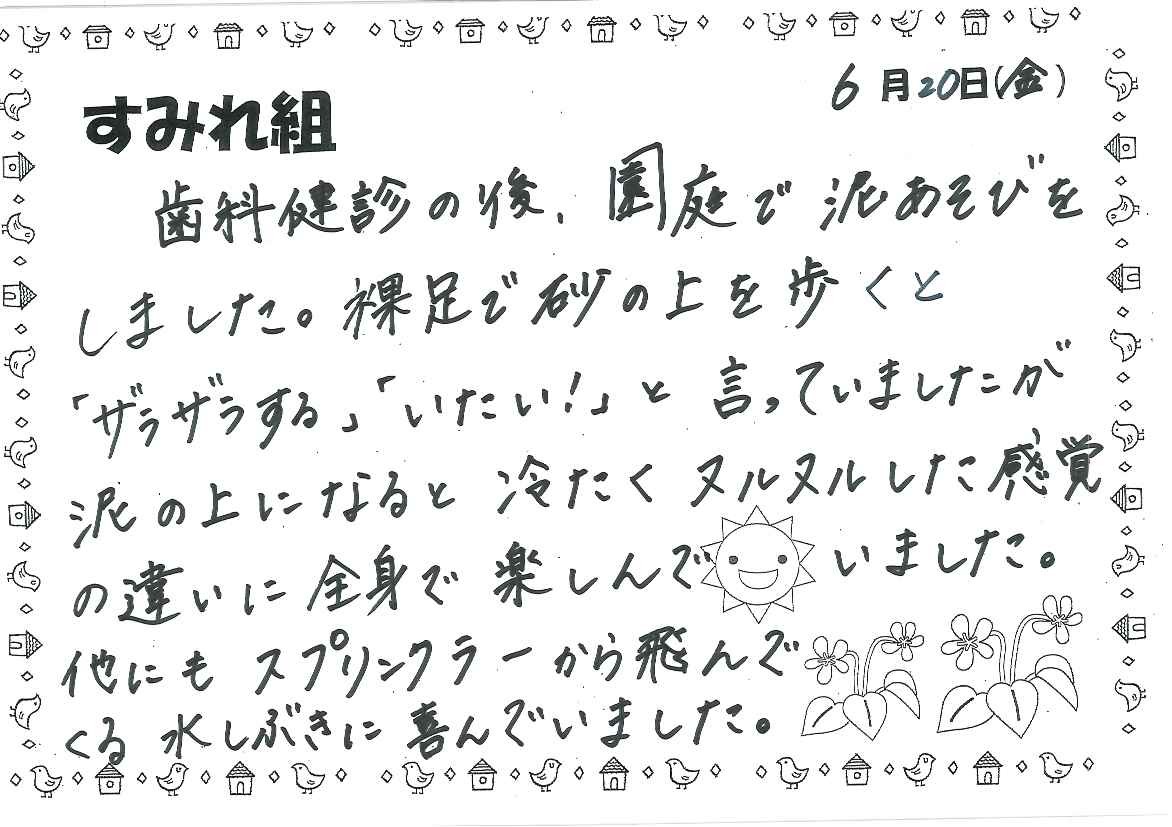 6月20日(金)
すみれ組
歯科健診の後、園庭で泥あそびを
しました。裸足で砂の上を歩くと
「ザラザラする」「いたい!」と言っていましたが
泥の上になると冷たくヌルヌルした感覚
の違いに全身で楽しんでいました。
他にもスプリンクラーから飛んで
くる水しぶきに喜んでいました。